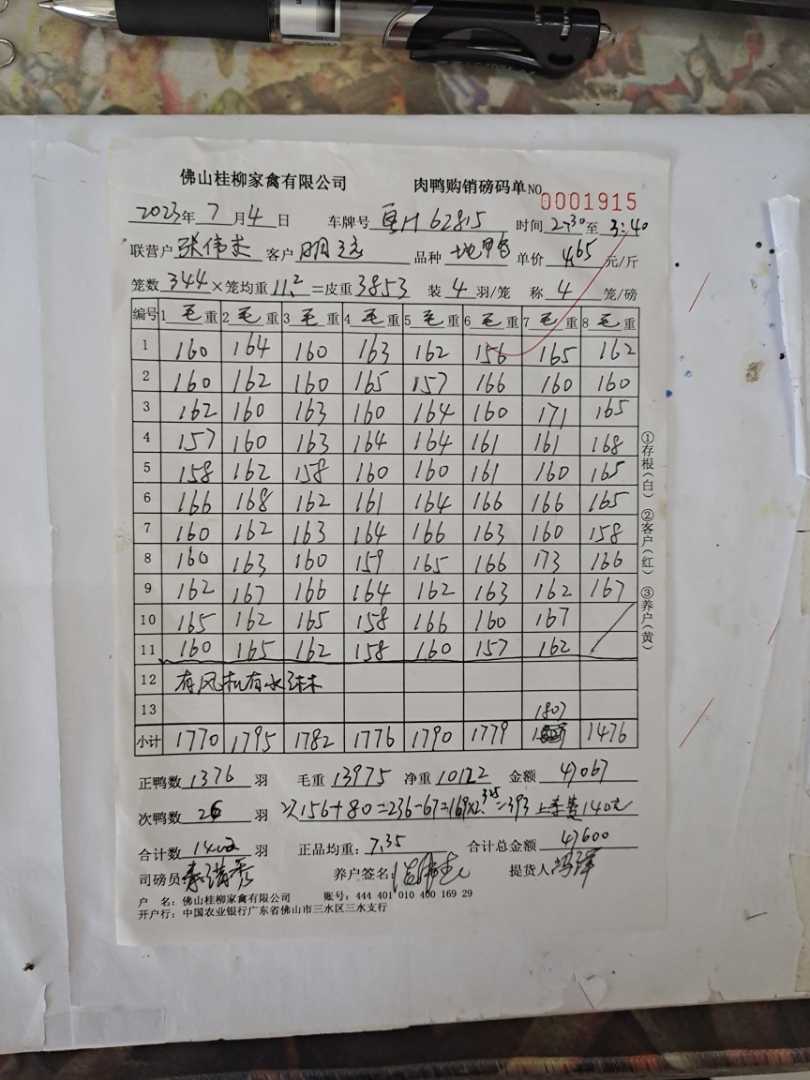 佛山桂柳家禽有限公司 肉鸭购销磅码单 NO 0001915
2023年 7月4日 车牌号 粤H62815 时间 2:30 至 3:40
联营户 张伟 客户 明 品种 单价 4.65 元/斤
笼数 344 × 笼均重 11.2 = 皮重 3853 装 4 羽/笼 称 4 笼/磅
编号 1 毛重 2 毛重 3 毛重 4 毛重 5 毛重 6 毛重 7 毛重 8 毛重
1 160 164 160 163 162 156 165 162
2 160 162 160 165 157 166 160 160
3 162 160 163 160 164 160 171 165
4 157 160 163 164 164 161 161 168
5 158 162 158 160 160 161 160 165
6 166 168 162 161 164 166 166 165
7 160 162 163 164 166 163 160 158
8 160 163 160 159 165 166 173 166
9 162 167 166 164 162 163 162 167
10 165 162 165 158 166 160 167
11 160 165 162 158 160 157 162
12 有风机有水
13
1807
小计 1770 1795 1782 1776 1790 1779 1476
正鸭数 1376 羽 毛重 13975 净重 10122 金额 47067
次鸭数 26 羽 156+80=236-67=169 =393 140元
合计数 1402 羽 正品均重: 7.35 合计总金额 47600
司磅员 养户签名: 提货人
户 名: 佛山桂柳家禽有限公司 账号: 444 401 010 400 169 29
开户行: 中国农业银行广东省佛山市三水区三水支行
①存根(白) ②客户(红) ③养户(黄)